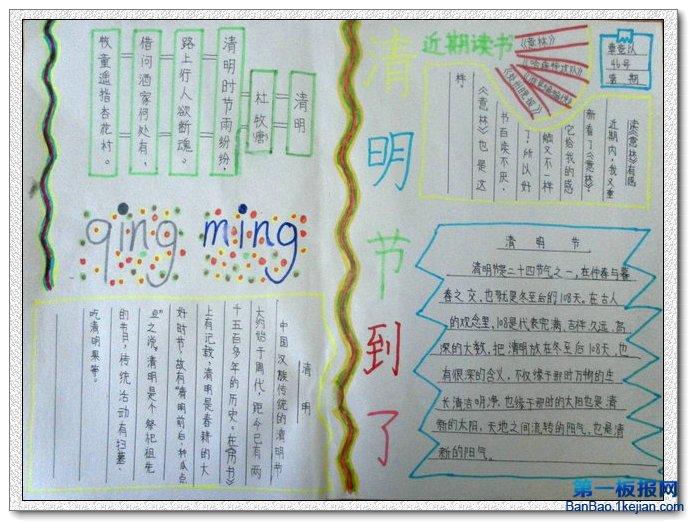 清明
杜牧(唐)
清明时节雨纷纷，
路上行人欲断魂。
借问酒家何处有，
牧童遥指杏花村。
qing ming
清明
中国汉族传统的清明节
大约始于周代，距今已有两
千五百多年的历史。在《历书》
上有记载：清明是春耕的大
好时节，故有“清明前后，种瓜点
豆”之说。清明是个祭祀祖先
的节日，传统活动有扫墓、
吃清明果等。
清明节到了
近期读书
《意林》
《哈佛特训队》
章鱼队
46号
第 期
读《意林》有感
近期内，我又重
新看了《意林》
它给我的感
触又不一样
了！所以好
书百读不厌，
《意林》也是这
样
清明节
清明节是二十四节气之一，在仲春与暮
春之交，也就是冬至后的108天。在古人
的观念里，108是代表完满、吉祥、久远、高
深的大数，把清明放在冬至后108天，也
有很深的含义，不仅缘于那时万物的生
长清洁明净，也缘于那时的太阳也是清
新的太阳，天地之间流转的阳气，也是清
新的阳气。
第一板报网
BanBao.1kejian.com